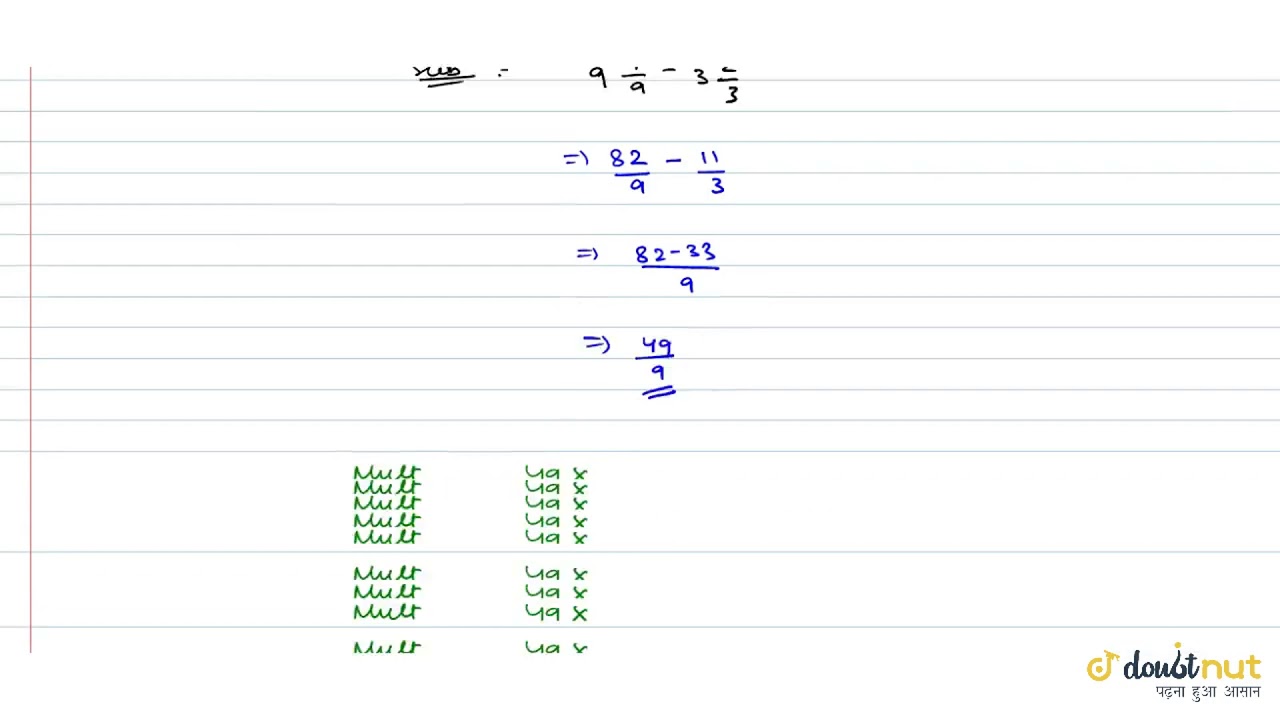 => 82/9 - 11/3
=> 82-33/9
=> 49/9
Mult 49 x
Mult 49 x
Mult 49 x
Mult 49 x
Mult 49 x
Mult 49 x
Mult 49 x
Mult 49 x
Mult 49 x
doubtnut
पढ़ना हुआ आसान